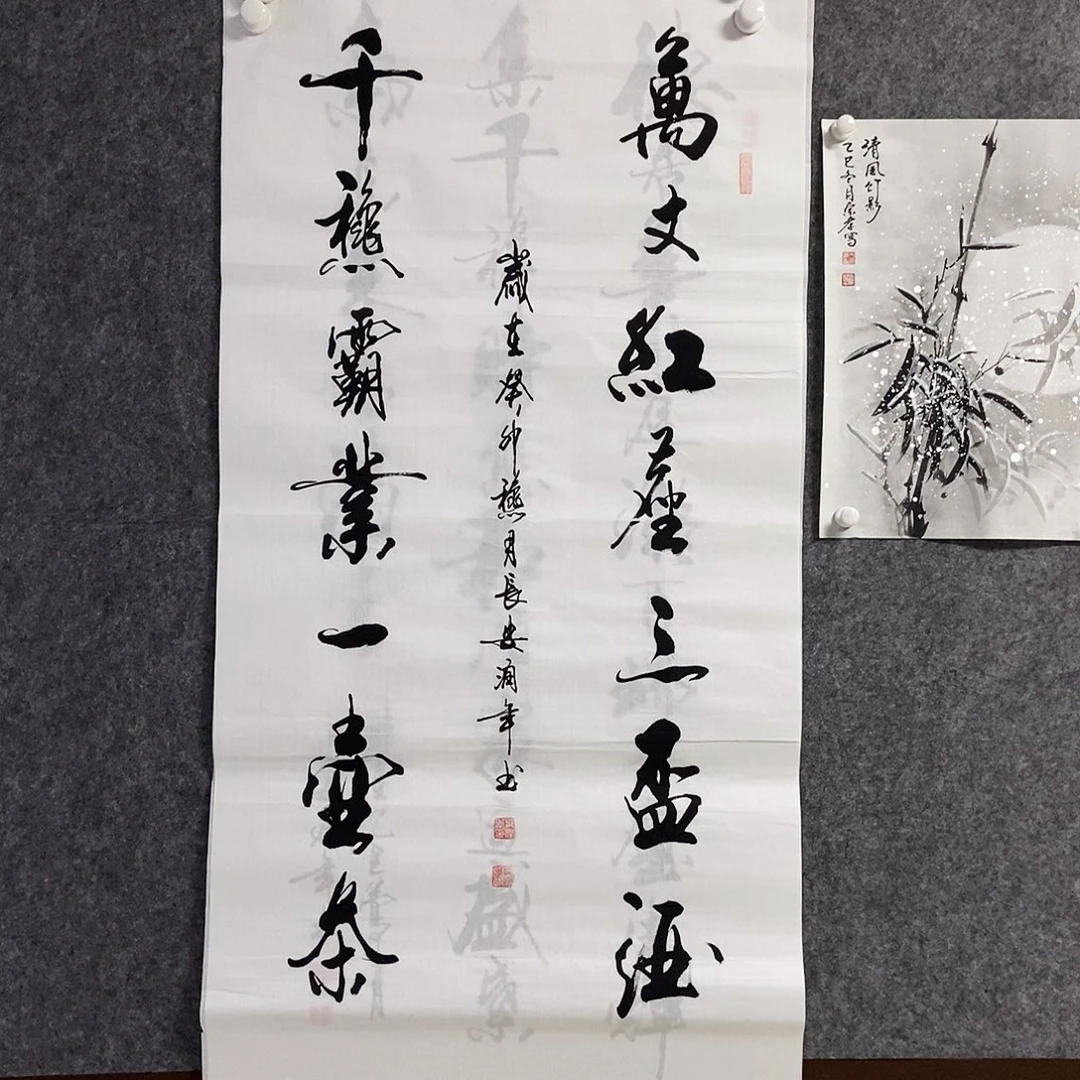 萬丈紅塵三盃酒
千穐霸業一壷茶
歲在癸卯穐月長安年书
清風竹影
乙巳冬月寫